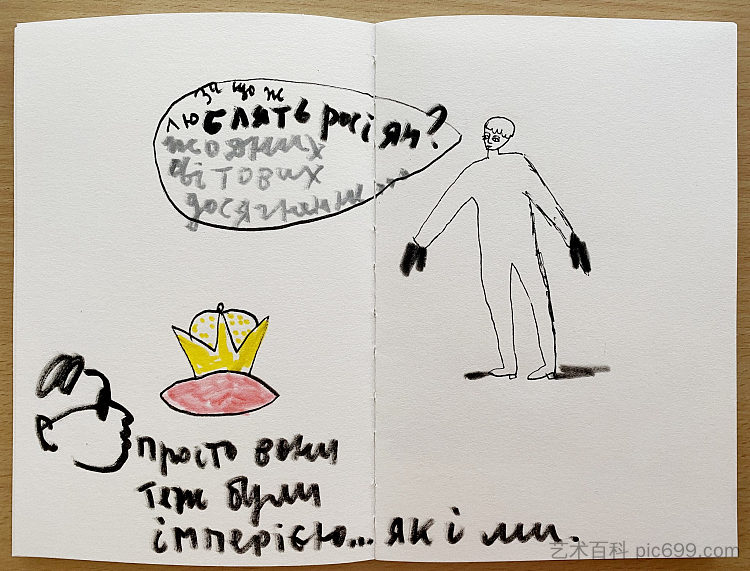 за що ж
люблять росіян?
жодних
світових
досягнень...
просто вони
теж були
імперією... як і ми.
艺术百科 pic699.com